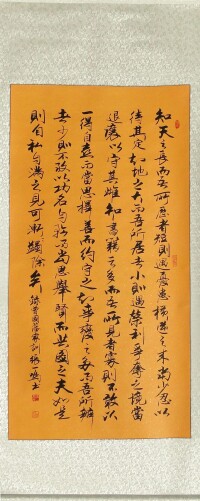 知天之長而吾所歷者短則遇憂患橫逆之來當少忍以
待其定知地之大而吾所居者小則遇榮利爭奪之境當
退讓以守其雌知書籍之多而吾所見者寡則不敢以
一得自喜而當思擇善而約守之知事變之多而吾所辦
者少則不敢以功名自矜而當思舉賢而共圖之夫如是
則自私自滿之見可漸漸蠲除矣 錄曾國藩家訓